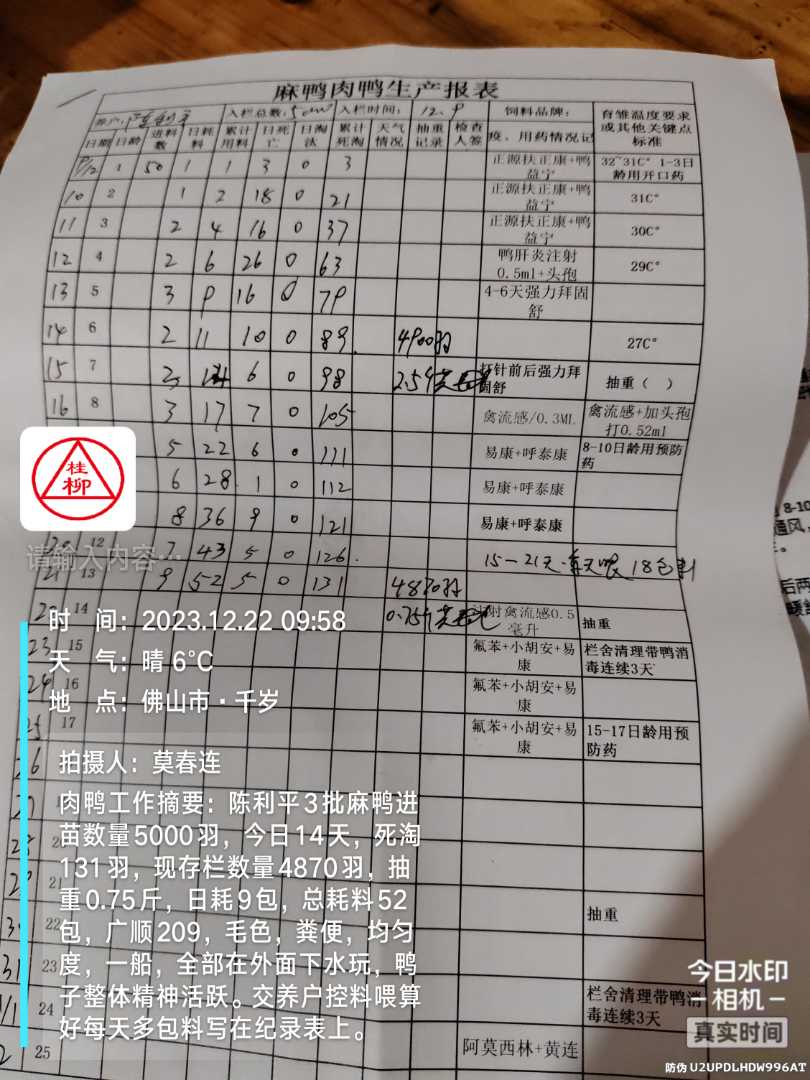 麻鸭肉鸭生产报表
养户: 陈利平 入栏总数: 5000 入栏时间: 12.9 饲料品牌: 育雏温度要求或其他关键点标准
日期 日龄 进料数 日耗料 累计用料 日死亡 日淘汰 累计死淘 天气情况 抽重记录 检查人签 疫、用药情况记
9/12 1 50 1 1 3 0 3 正源扶正康+鸭益宁 32~31C° 1-3日龄用开口药
10 2 1 2 18 0 21 正源扶正康+鸭益宁 31C°
11 3 2 4 16 0 37 正源扶正康+鸭益宁 30C°
12 4 2 6 26 0 63 鸭肝炎注射0.5ml+头孢 29C°
13 5 3 9 16 0 79 4-6天强力拜固舒
14 6 2 11 10 0 89 4900羽 27C°
15 7 3 14 6 0 98 打针前后强力拜固舒 抽重（ ）
16 8 3 17 7 0 105 禽流感/0.3ML 禽流感+加头孢打0.52ml
5 22 6 0 111 易康+呼泰康 8-10日龄用预防药
6 28 1 0 112 易康+呼泰康
8 36 9 0 121 易康+呼泰康
20 12 7 43 5 0 126 15-21天 每天喂 18包料
21 13 9 52 5 0 131 4870羽
22 14 射禽流感0.5毫升 抽重
23 15 氟苯+小胡安+易康 栏舍清理带鸭消毒连续3天
24 16 氟苯+小胡安+易康
25 17 氟苯+小胡安+易康 15-17日龄用预防药
26
21 抽重
22
31 23
1/1 24 栏舍清理带鸭消毒连续3天
2 25 阿莫西林+黄连
桂柳
请输入内容…
时 间: 2023.12.22 09:58
天 气: 晴 6°C
地 点: 佛山市·千岁
拍摄人: 莫春连
肉鸭工作摘要: 陈利平3批麻鸭进
苗数量5000羽，今日14天，死淘
131羽，现存栏数量4870羽，抽
重0.75斤，日耗9包，总耗料52
包，广顺209，毛色，粪便，均匀
度，一船，全部在外面下水玩，鸭
子整体精神活跃。交养户控料喂算
好每天多包料写在纪录表上。
8-10
通风，
后两
今日水印
相机
真实时间
防伪 U2UPDLHDW996AT